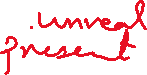 .unreal
present